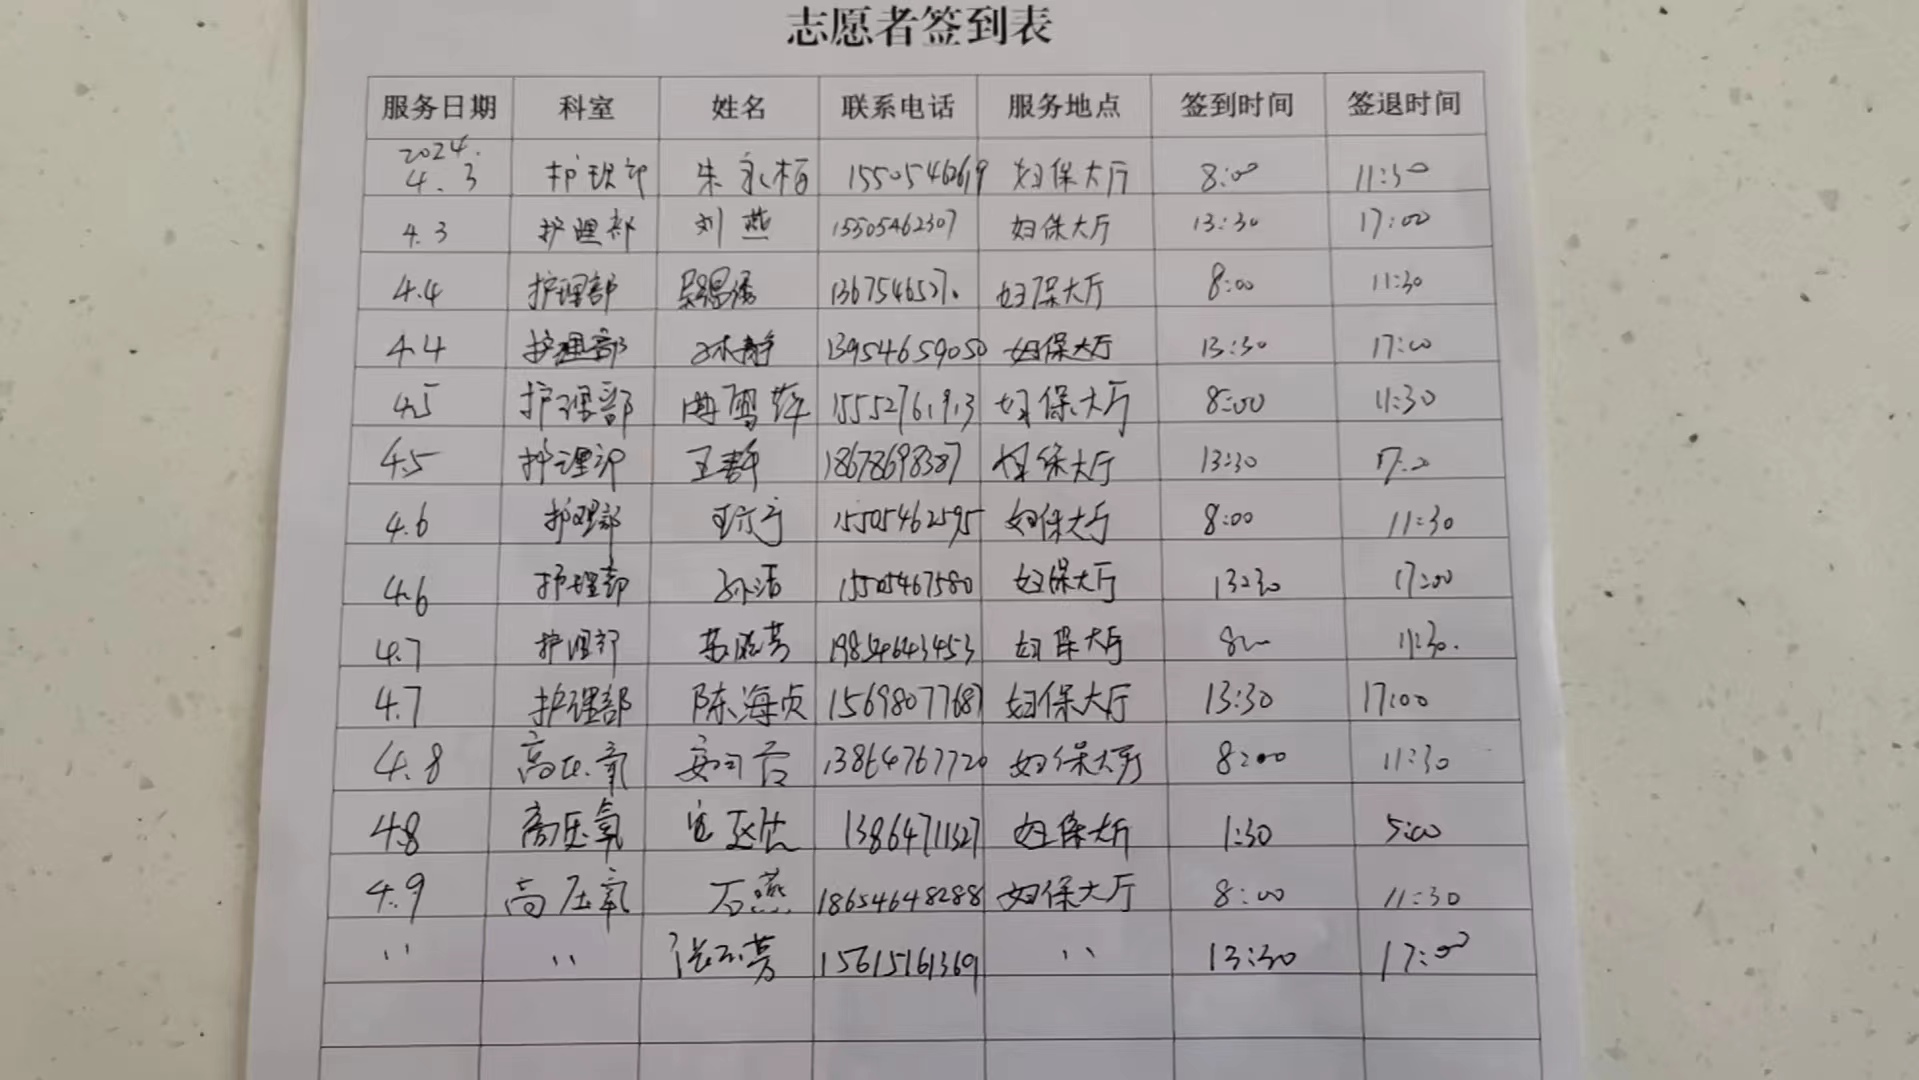 志愿者签到表
服务日期 科室 姓名 联系电话 服务地点 签到时间 签退时间
2024.
4.3 护理部 朱永梅 15505462619 妇保大厅 8:00 11:30
4.3 护理部 刘燕 15505462307 妇保大厅 13:30 17:00
4.4 护理部 妇保大厅 8:00 11:30
4.4 护理部 孙静 13954659050 妇保大厅 13:30 17:00
4.5 护理部 15552761913 妇保大厅 8:00 11:30
4.5 护理部 王静 18678698387 妇保大厅 13:30
4.6 护理部 15505462595 妇保大厅 8:00 11:30
4.6 护理部 孙洁 15505467580 妇保大厅 13:30 17:00
4.7 护理部 妇保大厅 11:30.
4.7 护理部 陈海贞 15698077687 妇保大厅 13:30 17:00
4.8 高压氧 13864767720 妇保大厅 8:00 11:30
4.8 高压氧 13864711327 妇保大厅 1:30 5:00
4.9 高压氧 石燕 18654648288 妇保大厅 8:00 11:30
〃 〃 15615161369 〃 13:30 17:00